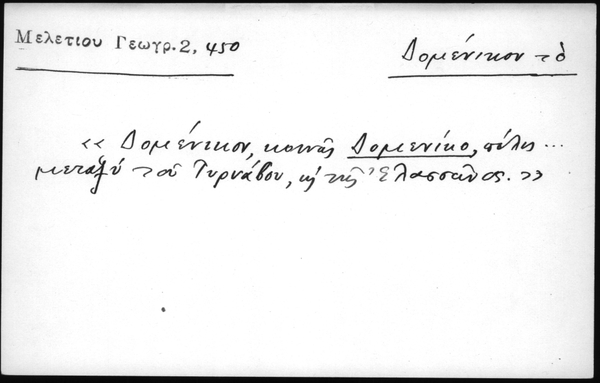 Μελετίου Γεωγρ. 2, 450
Δομένικον τὸ
«Δομένικον, κοινῶς Δομενίκο, πόλις...
μεταξὺ τοῦ Τυρνάβου, κ̀ τῆς Ἐλασσῶνος.»